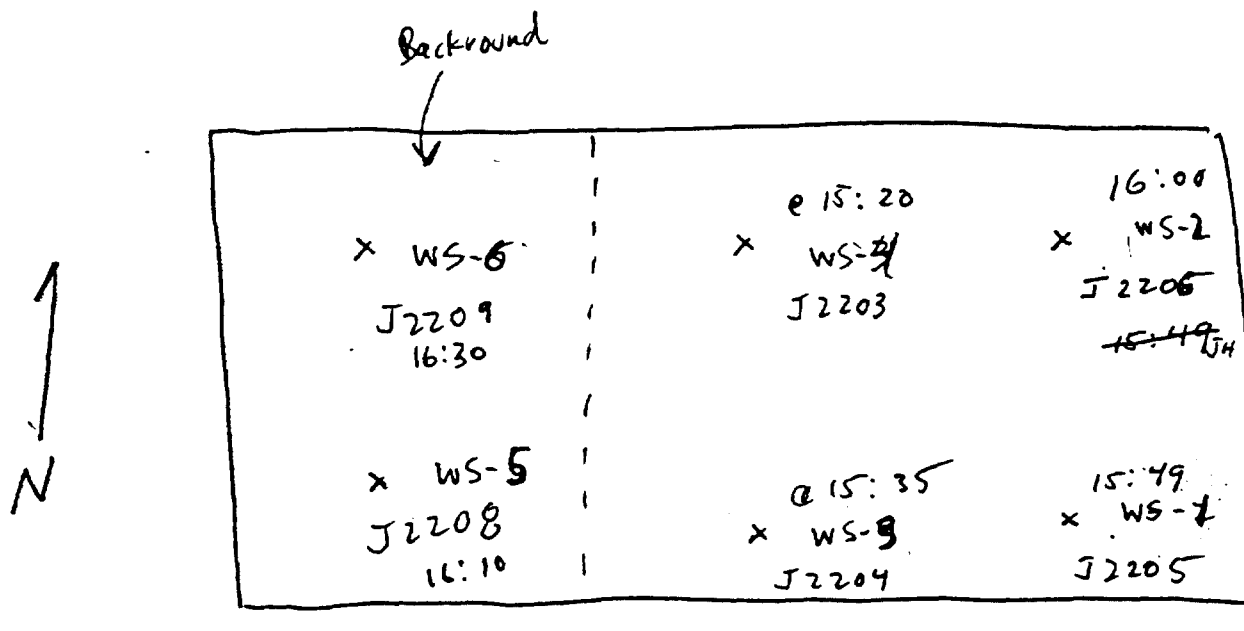 Backround
WS-6
J2209
16:30
@ 15:20
J2203
16:00
WS-2
J2206
15:49 JH
N
WS-5
J2208
16:10
@ 15:35
J2204
15:49
WS-1
J2205